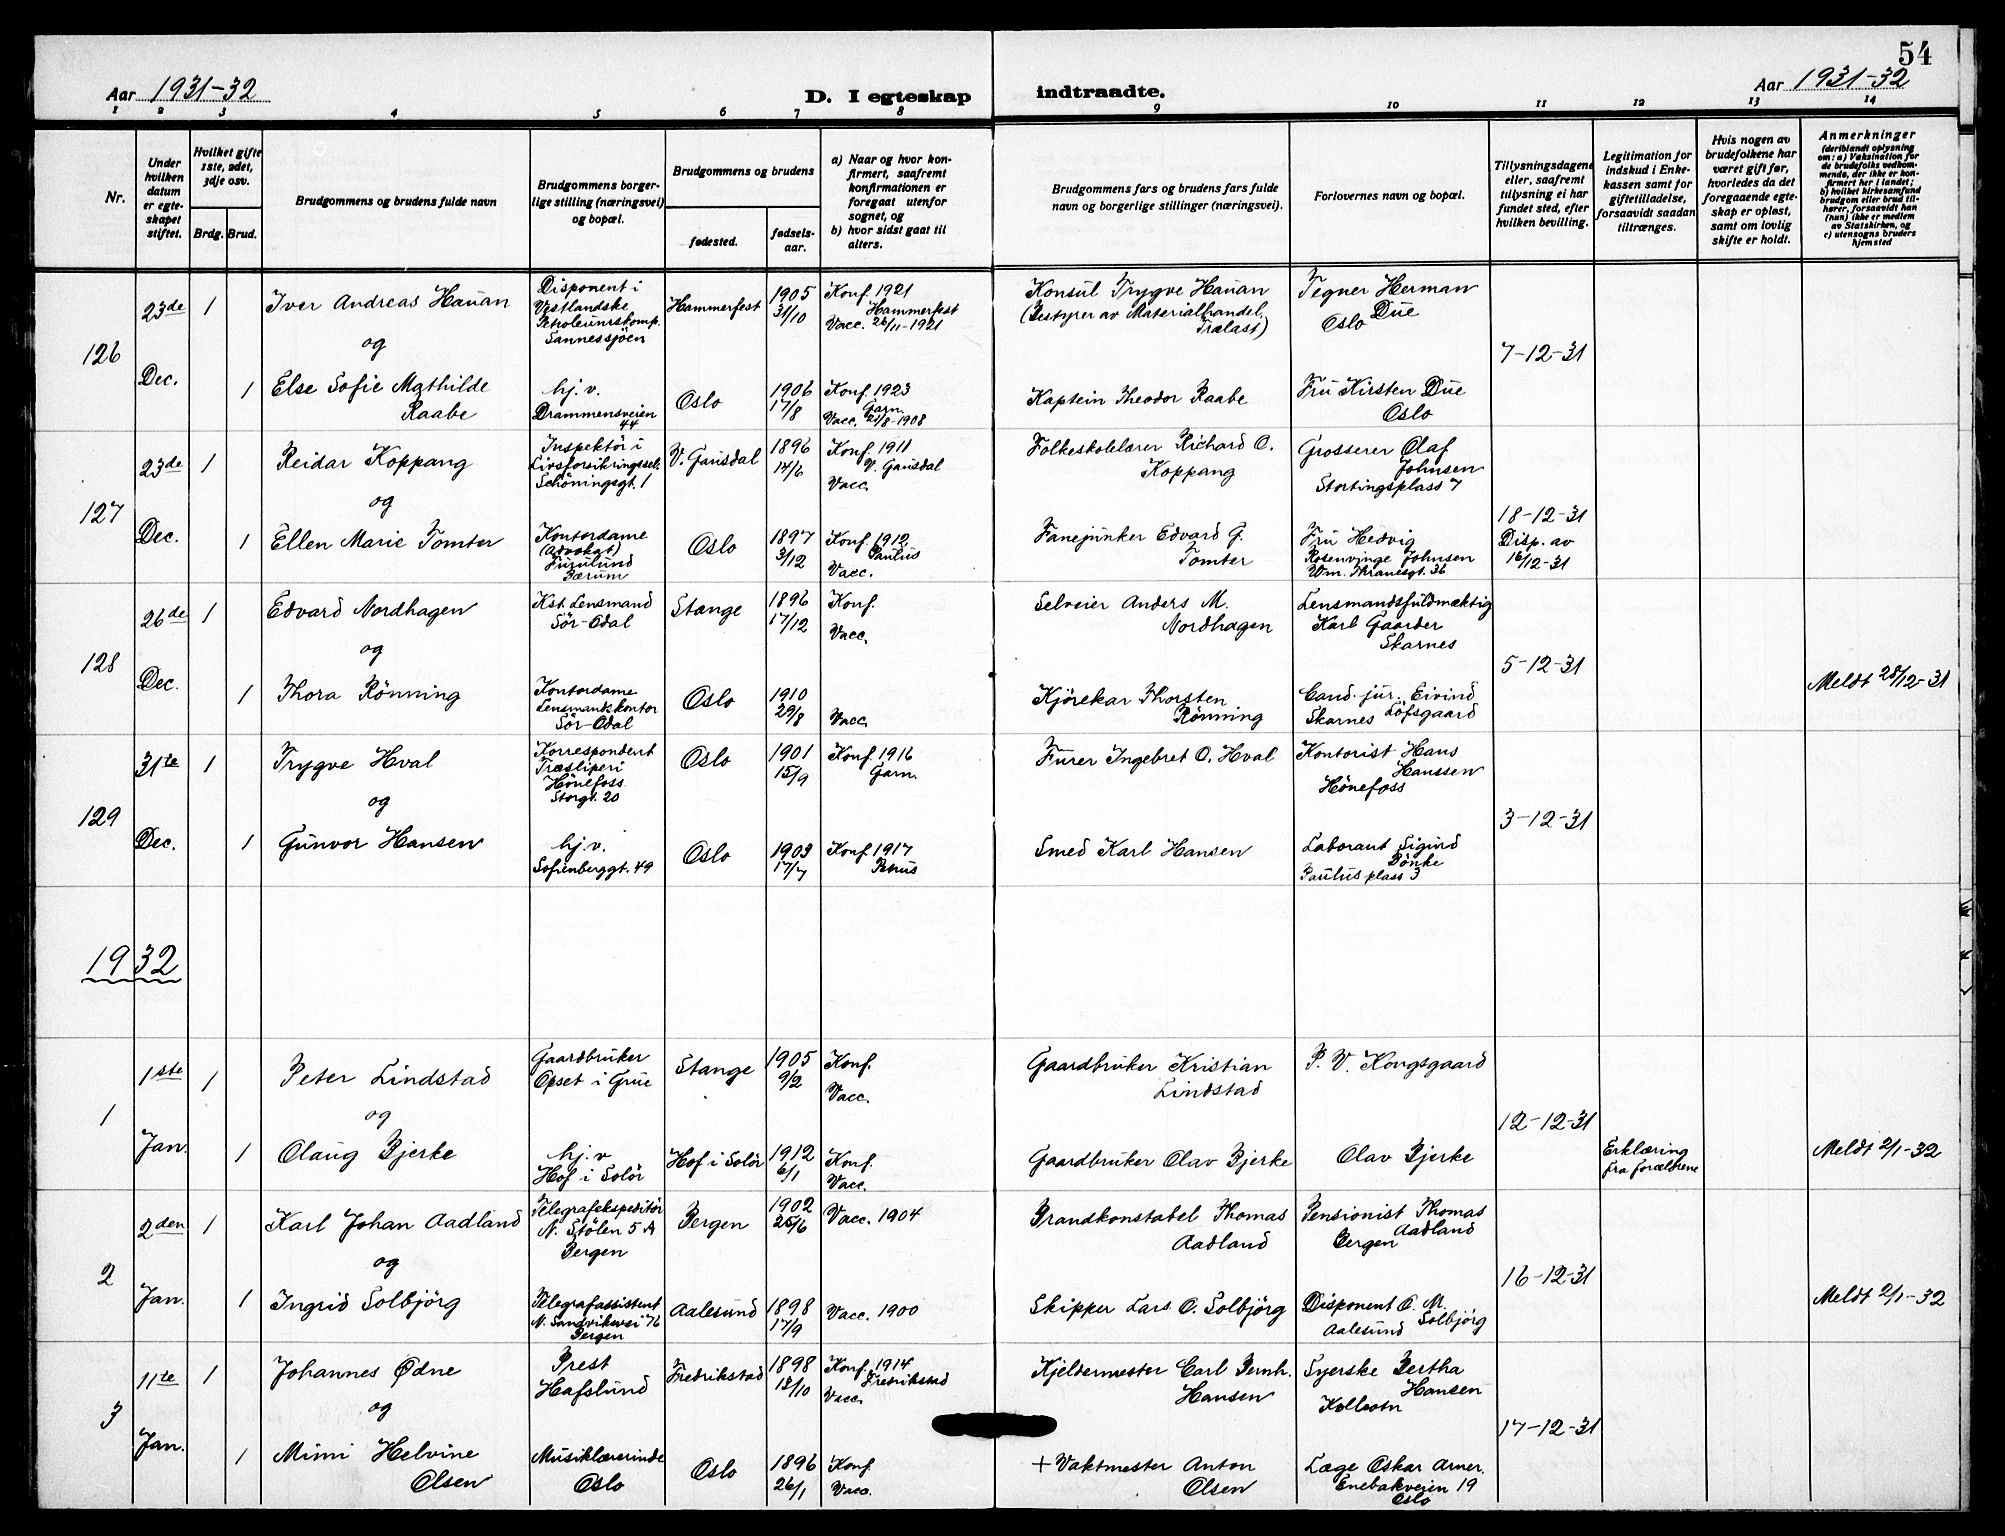 54
Aar 1931-32
D. I egteskap indtraadte.
Aar 1931-32
1 2 3 4 5 6 7 8 9 10 11 12 13 14
Nr.
Under hvilken datum er egte-skapet stiftet.
Hvilket gifte 1ste, 2det, 3dje osv.
Brdg. Brud.
Brudgommens og brudens fulde navn
Brudgommens borger-lige stilling (næringsvei) og bopæl.
Brudgommens og brudens
fødested.
fødsels-aar.
a) Naar og hvor kon-firmert, saafremt konfirmationen er foregaat utenfor sognet, og
b) hvor sidst gaat til alters.
Brudgommens fars og brudens fars fulde navn og borgerlige stillinger (næringsvei).
Forlovernes navn og bopæl.
Tillysningsdagene eller, saafremt tillysning ei har fundet sted, efter hvilken bevilling.
Legitimation for indskud i Enke-kassen samt for giftetilladelse, forsaavidt saadan tiltrænges.
Hvis nogen av brudefolkene har været gift før, hvorledes da det foregaaende egte-skap er opløst, samt om lovlig skifte er holdt.
Anmerkninger
(deriblandt oplysning om: a) Vaksination for de brudefolks vedkom-mende, der ikke er kon-firmert her i landet; b) hvilket kirkesamfund brudgom eller brud til-hører, forsaavidt han (hun) ikke er medlem av Statskirken, og c) utensogns bruders hjemsted
126
23de
Dec.
1
Iver Andreas Hauan
Disponent i
Vestlandske
Petroleumskomp.
Sannessjöen
Hammerfest
1905
31/10
Konf. 1921
Hammerfest
Vacc. 26/11-1921
Konsul Trygve Hauan
(Bestyrer av Materialhandel,
Trælast)
Tegner Herman
Due
Oslo
7-12-31
og
1
Else Sofie Mathilde
Raabe
hj. v.
Drammensveien
44
Oslo
1906
17/8
Konf. 1923
Garn.
Vacc. 21/8-1908
Kaptein Theodor Raabe
Fru Kirsten Due
Oslo
127
23de
Dec.
1
Reidar Koppang
Inspektör i
Livsforsikringssel.
Schöningsgt. 1
V. Gausdal
1896
14/6
Konf. 1911
V. Gausdal
Vacc.
Folkeskolelærer Richard O.
Koppang
Grosserer Olaf
Johnsen
Stortingsplass 7
18-12-31
Disp. av
16/12-31
og
1
Ellen Marie Tomter
Kontordame
(Advokat)
Furulund
Bærum
Oslo
1897
3/12
Konf. 1912
Paulus
Vacc.
Fanejunker Edvard G.
Tomter
Fru Hedvig
Rosenvinge Johnsen
Wm. Thranesgt. 36
128
26de
Dec.
1
Edvard Nordhagen
Kst. Lensmand
Sör-Odal
Stange
1896
17/12
Konf.
Vacc.
Selveier Anders M.
Nordhagen
Lensmandsfuldmæktig
Karl Gaarder
Skarnes
5-12-31
og
1
Thora Rönning
Kontordame
Lensmandskontor
Sör-Odal
Oslo
1910
29/8
Vacc.
Kjörekar Thorsten
Rönning
Cand. jur. Eivind
Skarnes Löfsgaard
Meldt 28/12-31
129
31te
Dec.
1
Trygve Hval
Korrespondent
Træsliperi
Hönefoss
Storgt. 20
Oslo
1901
15/9
Konf. 1916
Garn.
Furer Ingebret O. Hval
Kontorist Hans
Hanssen
Hönefoss
3-12-31
og
1
Gunvor Hansen
hj. v.
Sofienberggt. 49
Oslo
1903
17/7
Konf. 1917
Petrus
Smed Karl Hansen
Laborant Sigurd
Bönke
Paulus plass 3
1932
1
1ste
Jan.
1
Peter Lindstad
Gaardbruker
Opset i Grue
Stange
1905
9/2
Konf.
Vacc.
Gaardbruker Kristian
Lindstad
P. V. Kongsgaard
12-12-31
og
1
Olaug Bjerke
hj. v
Hof i Solör
Hof i Solör
1912
6/1
Konf.
Vacc.
Gaardbruker Olav Bjerke
Olav Bjerke
Erklæring
fra forældrene
Meldt 2/1-32
2
2den
Jan.
1
Karl Johan Aadland
Telegrafekspeditör
N. Stölen 5 A
Bergen
Bergen
1902
25/6
Vacc. 1904
Brandkonstabel Thomas
Aadland
Pensionist Thomas
Aadland
Bergen
16-12-31
og
1
Ingrid Solbjörg
Telegrafassistent
N. Sandvikvei 76
Bergen
Aalesund
1898
17/9
Vacc. 1900
Skipper Lars O. Solbjörg
Disponent O. M.
Solbjörg
Aalesund
Meldt 2/1-32
3
11te
Jan.
1
Johannes Ødne
Prest
Hafslund
Fredrikstad
1898
/10
Konf. 1914
Fredrikstad
Vacc.
Kjeldermester Carl Bernh.
Hansen
Syerske Bertha
Hansen
Kolbotn
17-12-31
og
1
Mimi Helvine
Olsen
Musiklærerinde
Oslo
Oslo
1896
26/1
Konf.
Vacc.
+ Vaktmester Anton
Olsen
Læge Oskar Arner.
Enebakveien 19
Oslo